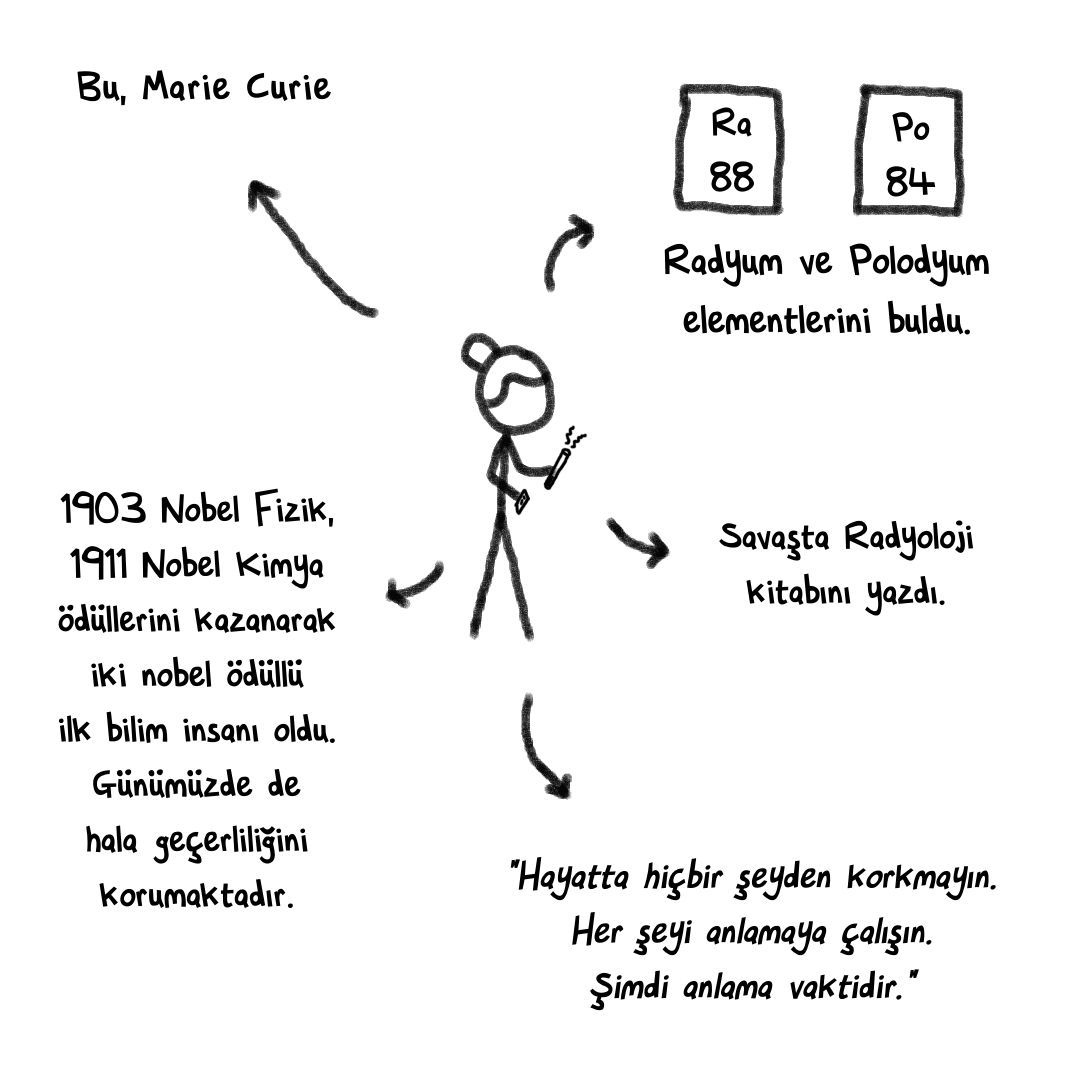 Bu, Marie Curie
Ra
88
Po
84
Radyum ve Polodyum
elementlerini buldu.
1903 Nobel Fizik,
1911 Nobel Kimya
ödüllerini kazanarak
iki nobel ödüllü
ilk bilim insanı oldu.
Günümüzde de
hala geçerliliğini
korumaktadır.
Savaşta Radyoloji
kitabını yazdı.
"Hayatta hiçbir şeyden korkmayın.
Her şeyi anlamaya çalışın.
Şimdi anlama vaktidir."